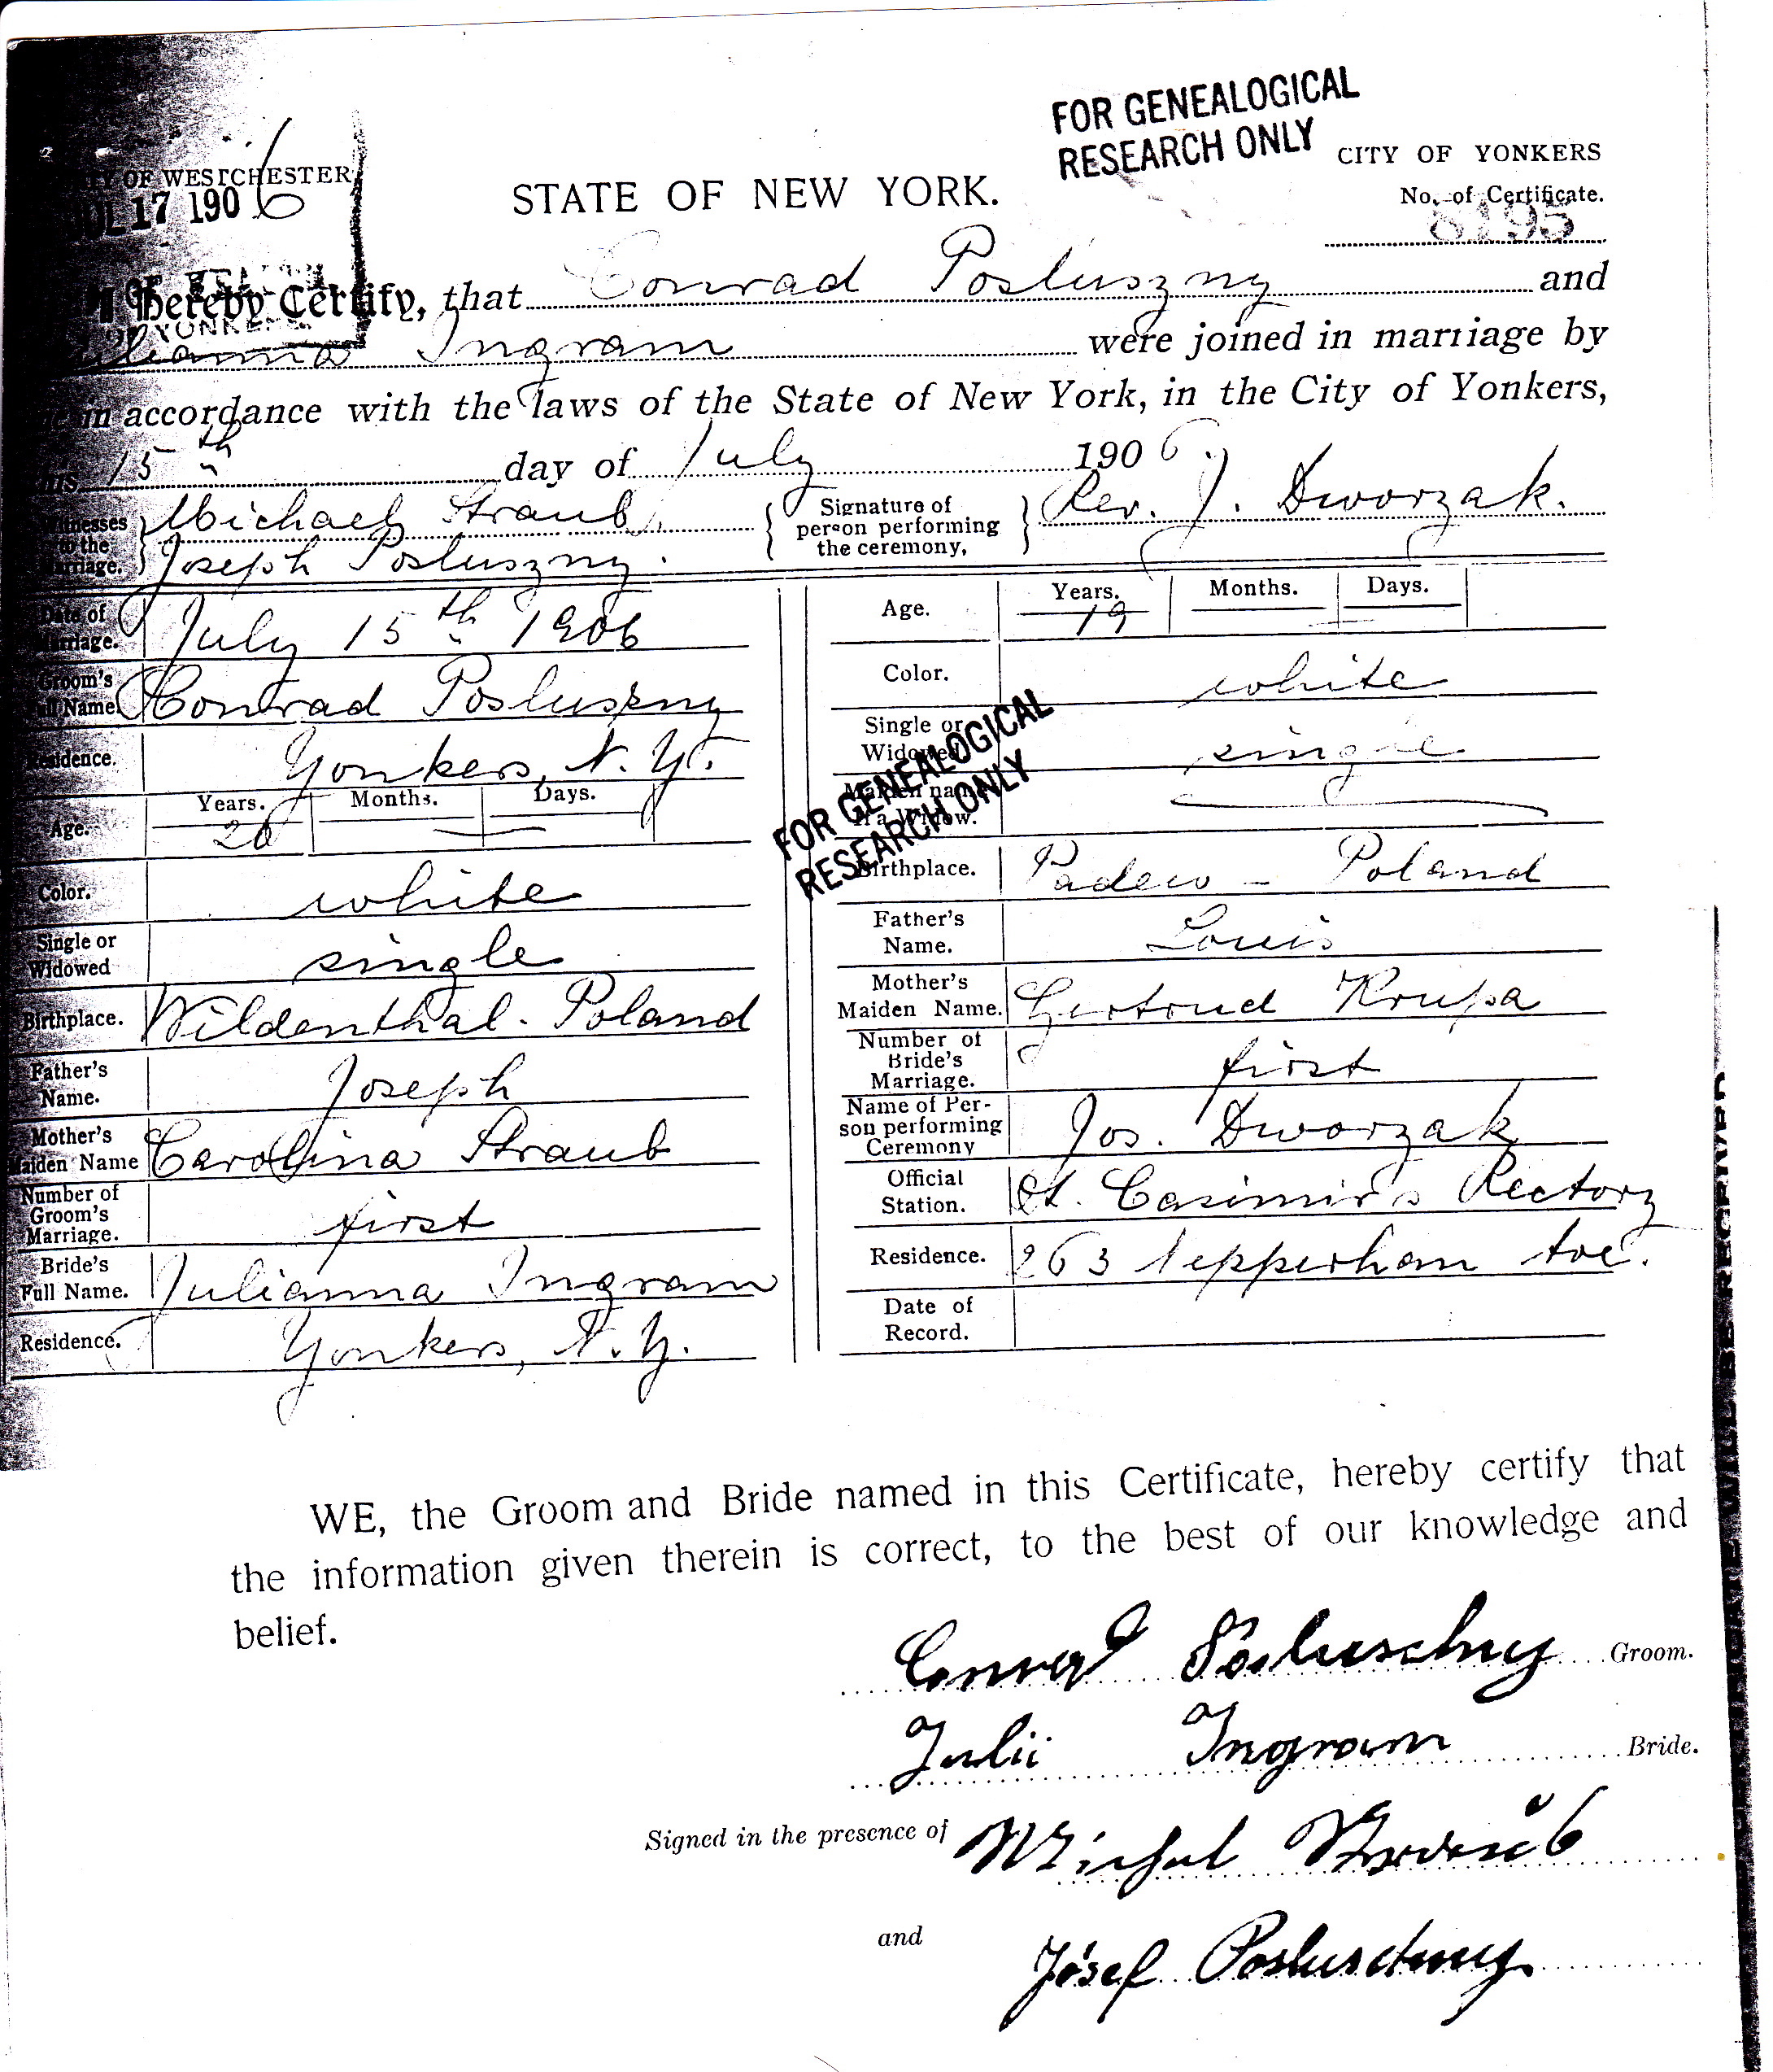 FOR GENEALOGICAL
RESEARCH ONLY
OF WESTCHESTER
CITY OF YONKERS
17 1906
STATE OF NEW YORK.
No. of Certificate.
8195
Hereby Certify, that Conrad Posluszny and
YONKERS
Julianna Ingram were joined in marriage by
in accordance with the laws of the State of New York, in the City of Yonkers,
this 15th day of July 1906.
Witnesses to the Marriage. Michael Straub,
Joseph Posluszny.
Signature of person performing the ceremony, Rev. J. Dworzak.
Date of Marriage. July 15th 1906
Groom's Full Name. Conrad Posluszny
Residence. Yonkers, N.Y.
Age. Years. Months. Days.
Color. white
Single or Widowed single
Birthplace. Wildenthal - Poland
Father's Name. Joseph
Mother's Maiden Name Carolina Straub
Number of Groom's Marriage. first
Bride's Full Name. Julianna Ingram
Residence. Yonkers, N.Y.
Age. Years. 19 Months. Days.
Color. white
Single or Widowed single
Maiden name If a Widow.
FOR GENEALOGICAL
RESEARCH ONLY
Birthplace. Padew - Poland
Father's Name. Louis
Mother's Maiden Name. Gertrud Krupa
Number of Bride's Marriage. first
Name of Person performing Ceremony Jos. Dworzak
Official Station. St. Casimir's Rectory
Residence. 263 Nepperhan Ave.
Date of Record.
WE, the Groom and Bride named in this Certificate, hereby certify that
the information given therein is correct, to the best of our knowledge and
belief.
Conrad Posluschny Groom.
Julii Ingram Bride.
Signed in the presence of
and Josef Posluschny